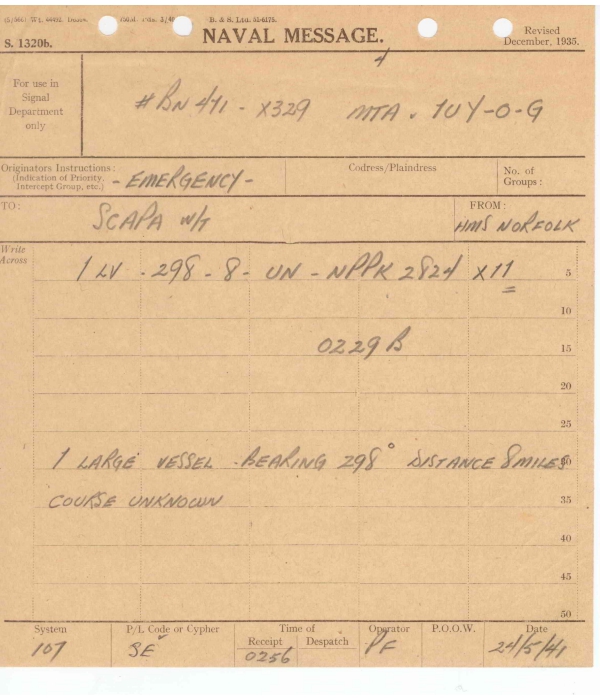 B. & S. Ltd. 51-6175.
S. 1320b.
NAVAL MESSAGE.
Revised
December, 1935.
For use in
Signal
Department
only
#BN 411 - X329 MTA . 1UY-O-G
Originators Instructions:
(Indication of Priority,
Intercept Group, etc.)
- EMERGENCY -
Codress/Plaindress
No. of
Groups:
TO:
SCAPA W/T
FROM:
HMS NORFOLK
Write
Across
1 LV - 298 - 8 - UN - NPPK 2824 X11
5
10
0229 B
15
20
25
1 LARGE VESSEL . BEARING 298° DISTANCE 8 MILES
30
COURSE UNKNOWN
35
40
45
50
System P/L Code or Cypher Time of Operator P.O.O.W. Date
Receipt Despatch
107 SE 0256 PF 24/5/41